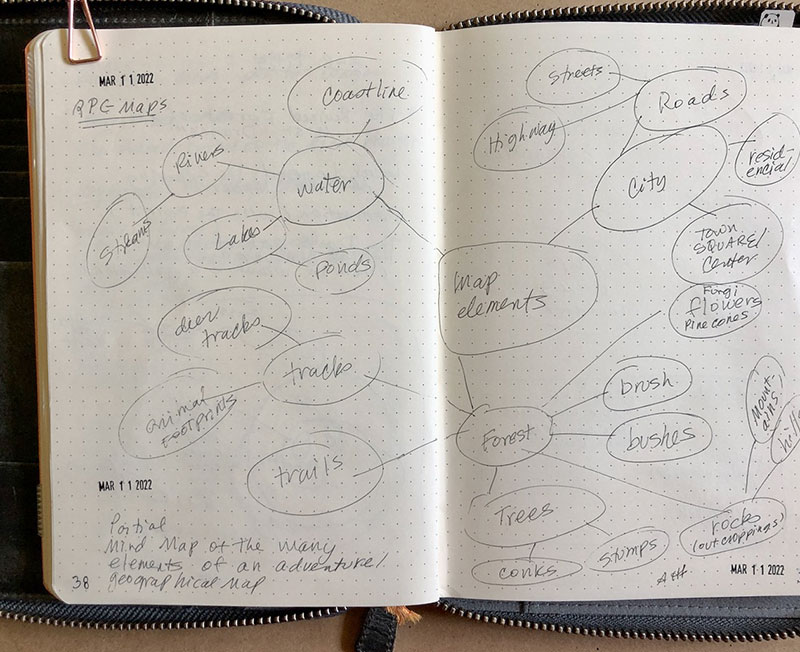 MAR 1 1 2022
RPG Maps
Coastline
Rivers
water
Streams
Lakes
Ponds
deer
tracks
tracks
animal
footprints
trails
MAR 1 1 2022
Partial
Mind Map of the many
elements of an adventure/
geographical map
38
Streets
Roads
Highway
City
resid-
encial
Town
SQUARE/
Center
Map
elements
Fungi
flowers
Pinecones
brush
Forest
bushes
Mount-
ains/
hill
Trees
rocks
(outcroppings)
stumps
conks
MAR 1 1 2022